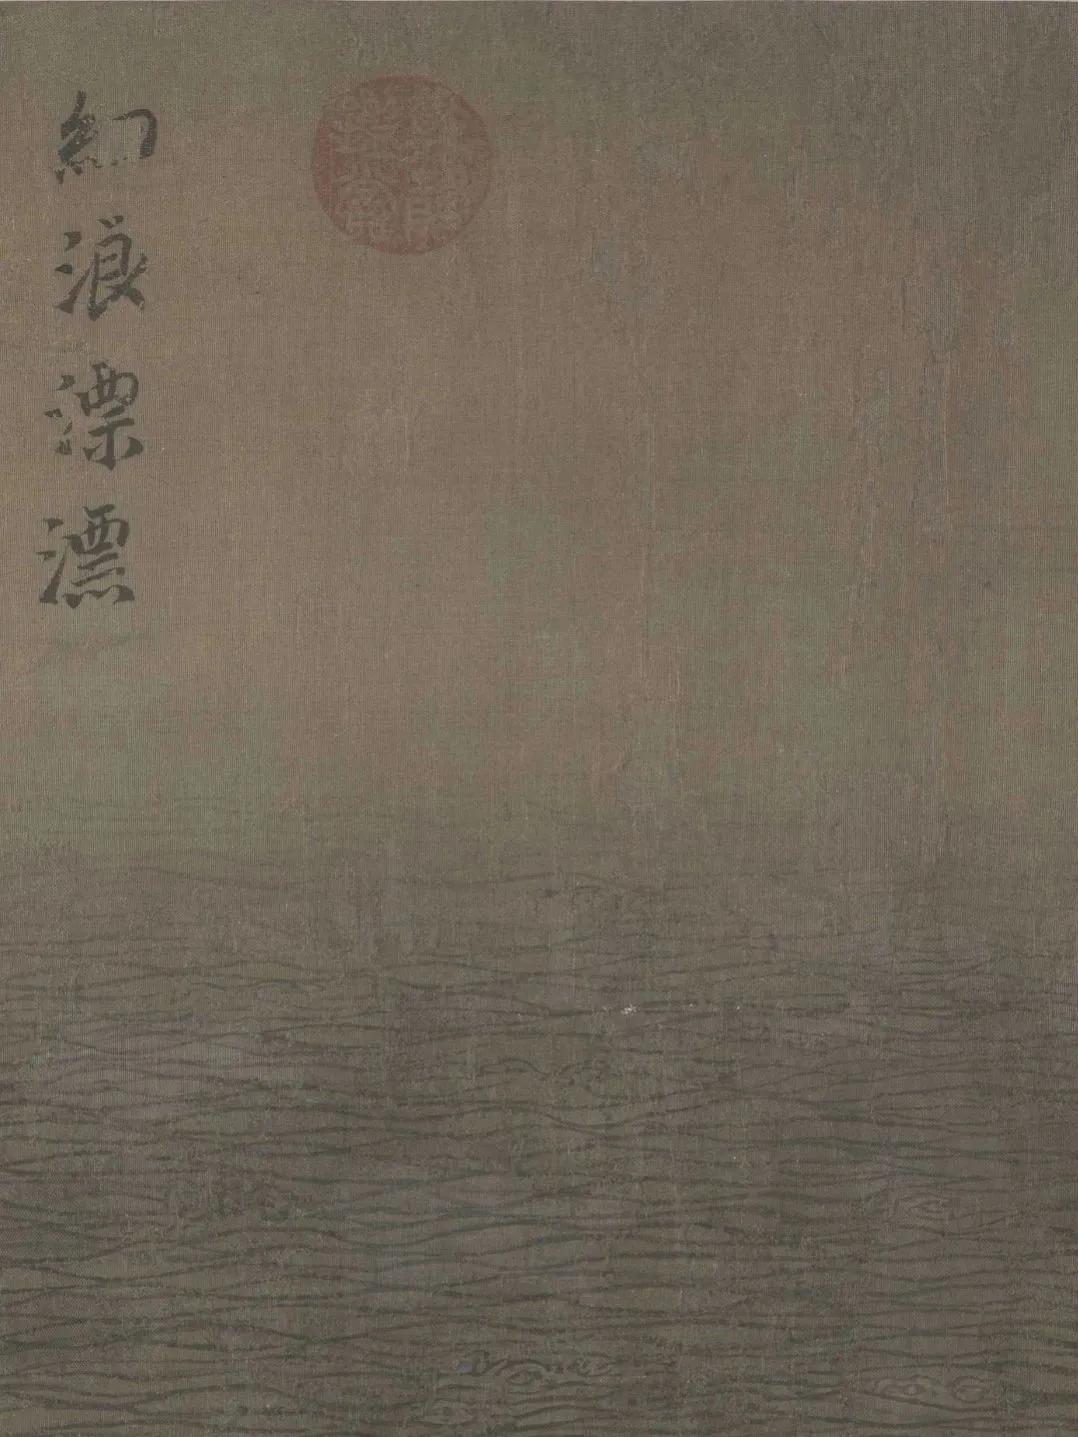 細浪漂漂